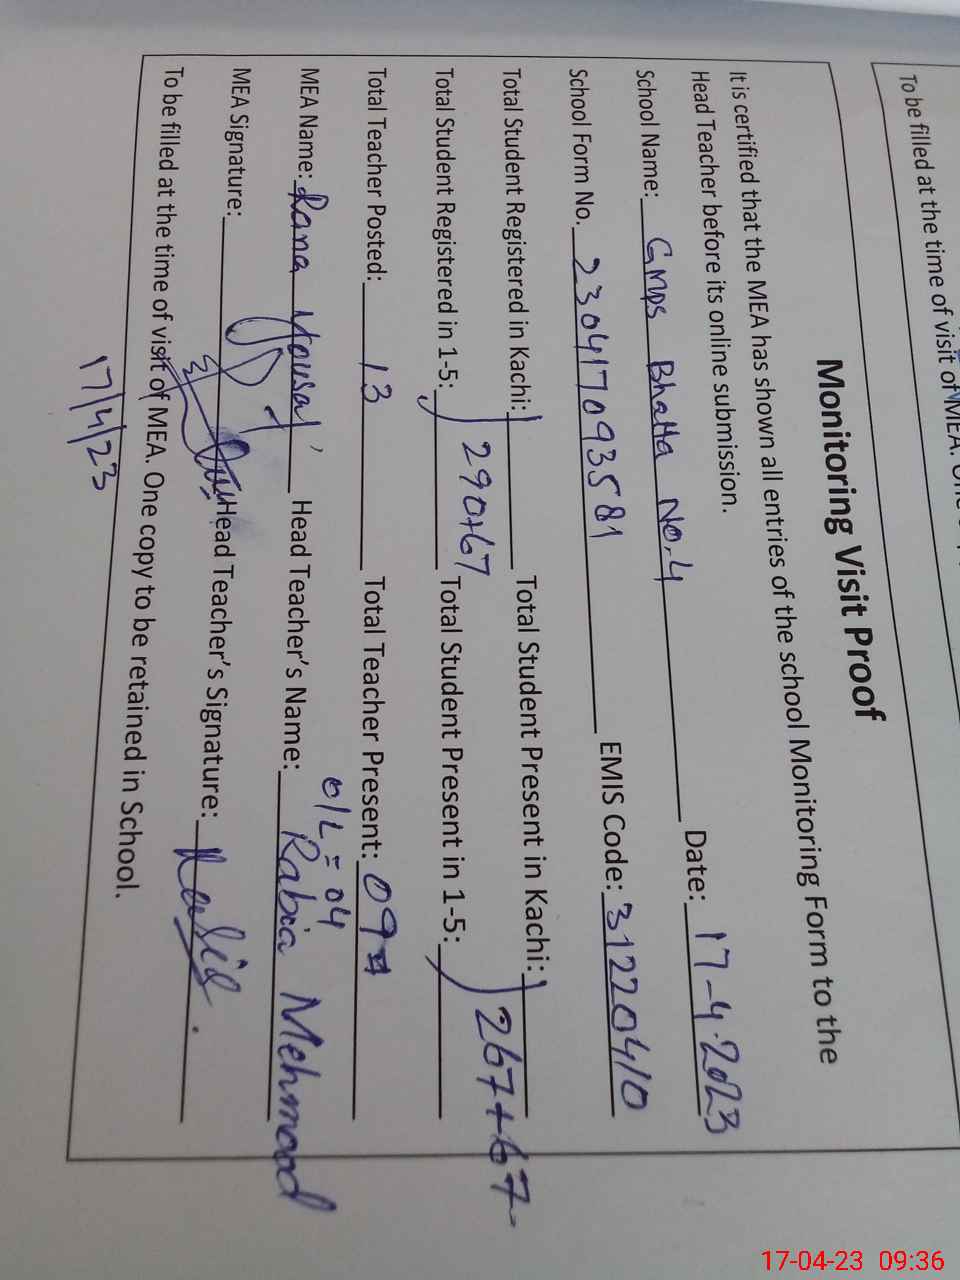 To be filled at the time of visit of MEA. One
Monitoring Visit Proof
It is certified that the MEA has shown all entries of the school Monitoring Form to the
Head Teacher before its online submission.
Date: 17-4-2023
School Name: GMPS Bhatta No.4
School Form No. 230417093581 EMIS Code: 31220410
Total Student Registered in Kachi: Total Student Present in Kachi:
290+67 267+67
Total Student Registered in 1-5: Total Student Present in 1-5:
Total Teacher Posted: 13 Total Teacher Present: 09
o/L = 04
MEA Name: Rana Yousaf Head Teacher's Name: Rabia Mehmood
MEA Signature: Head Teacher's Signature:
To be filled at the time of visit of MEA. One copy to be retained in School.
17/4/23
17-04-23 09:36